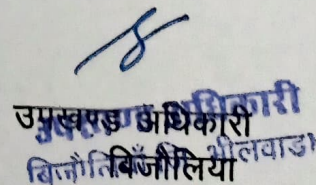 उपखण्ड अधिकारी
उपखण्ड अधिकारी
बिजौलिया
भीलवाड़ा